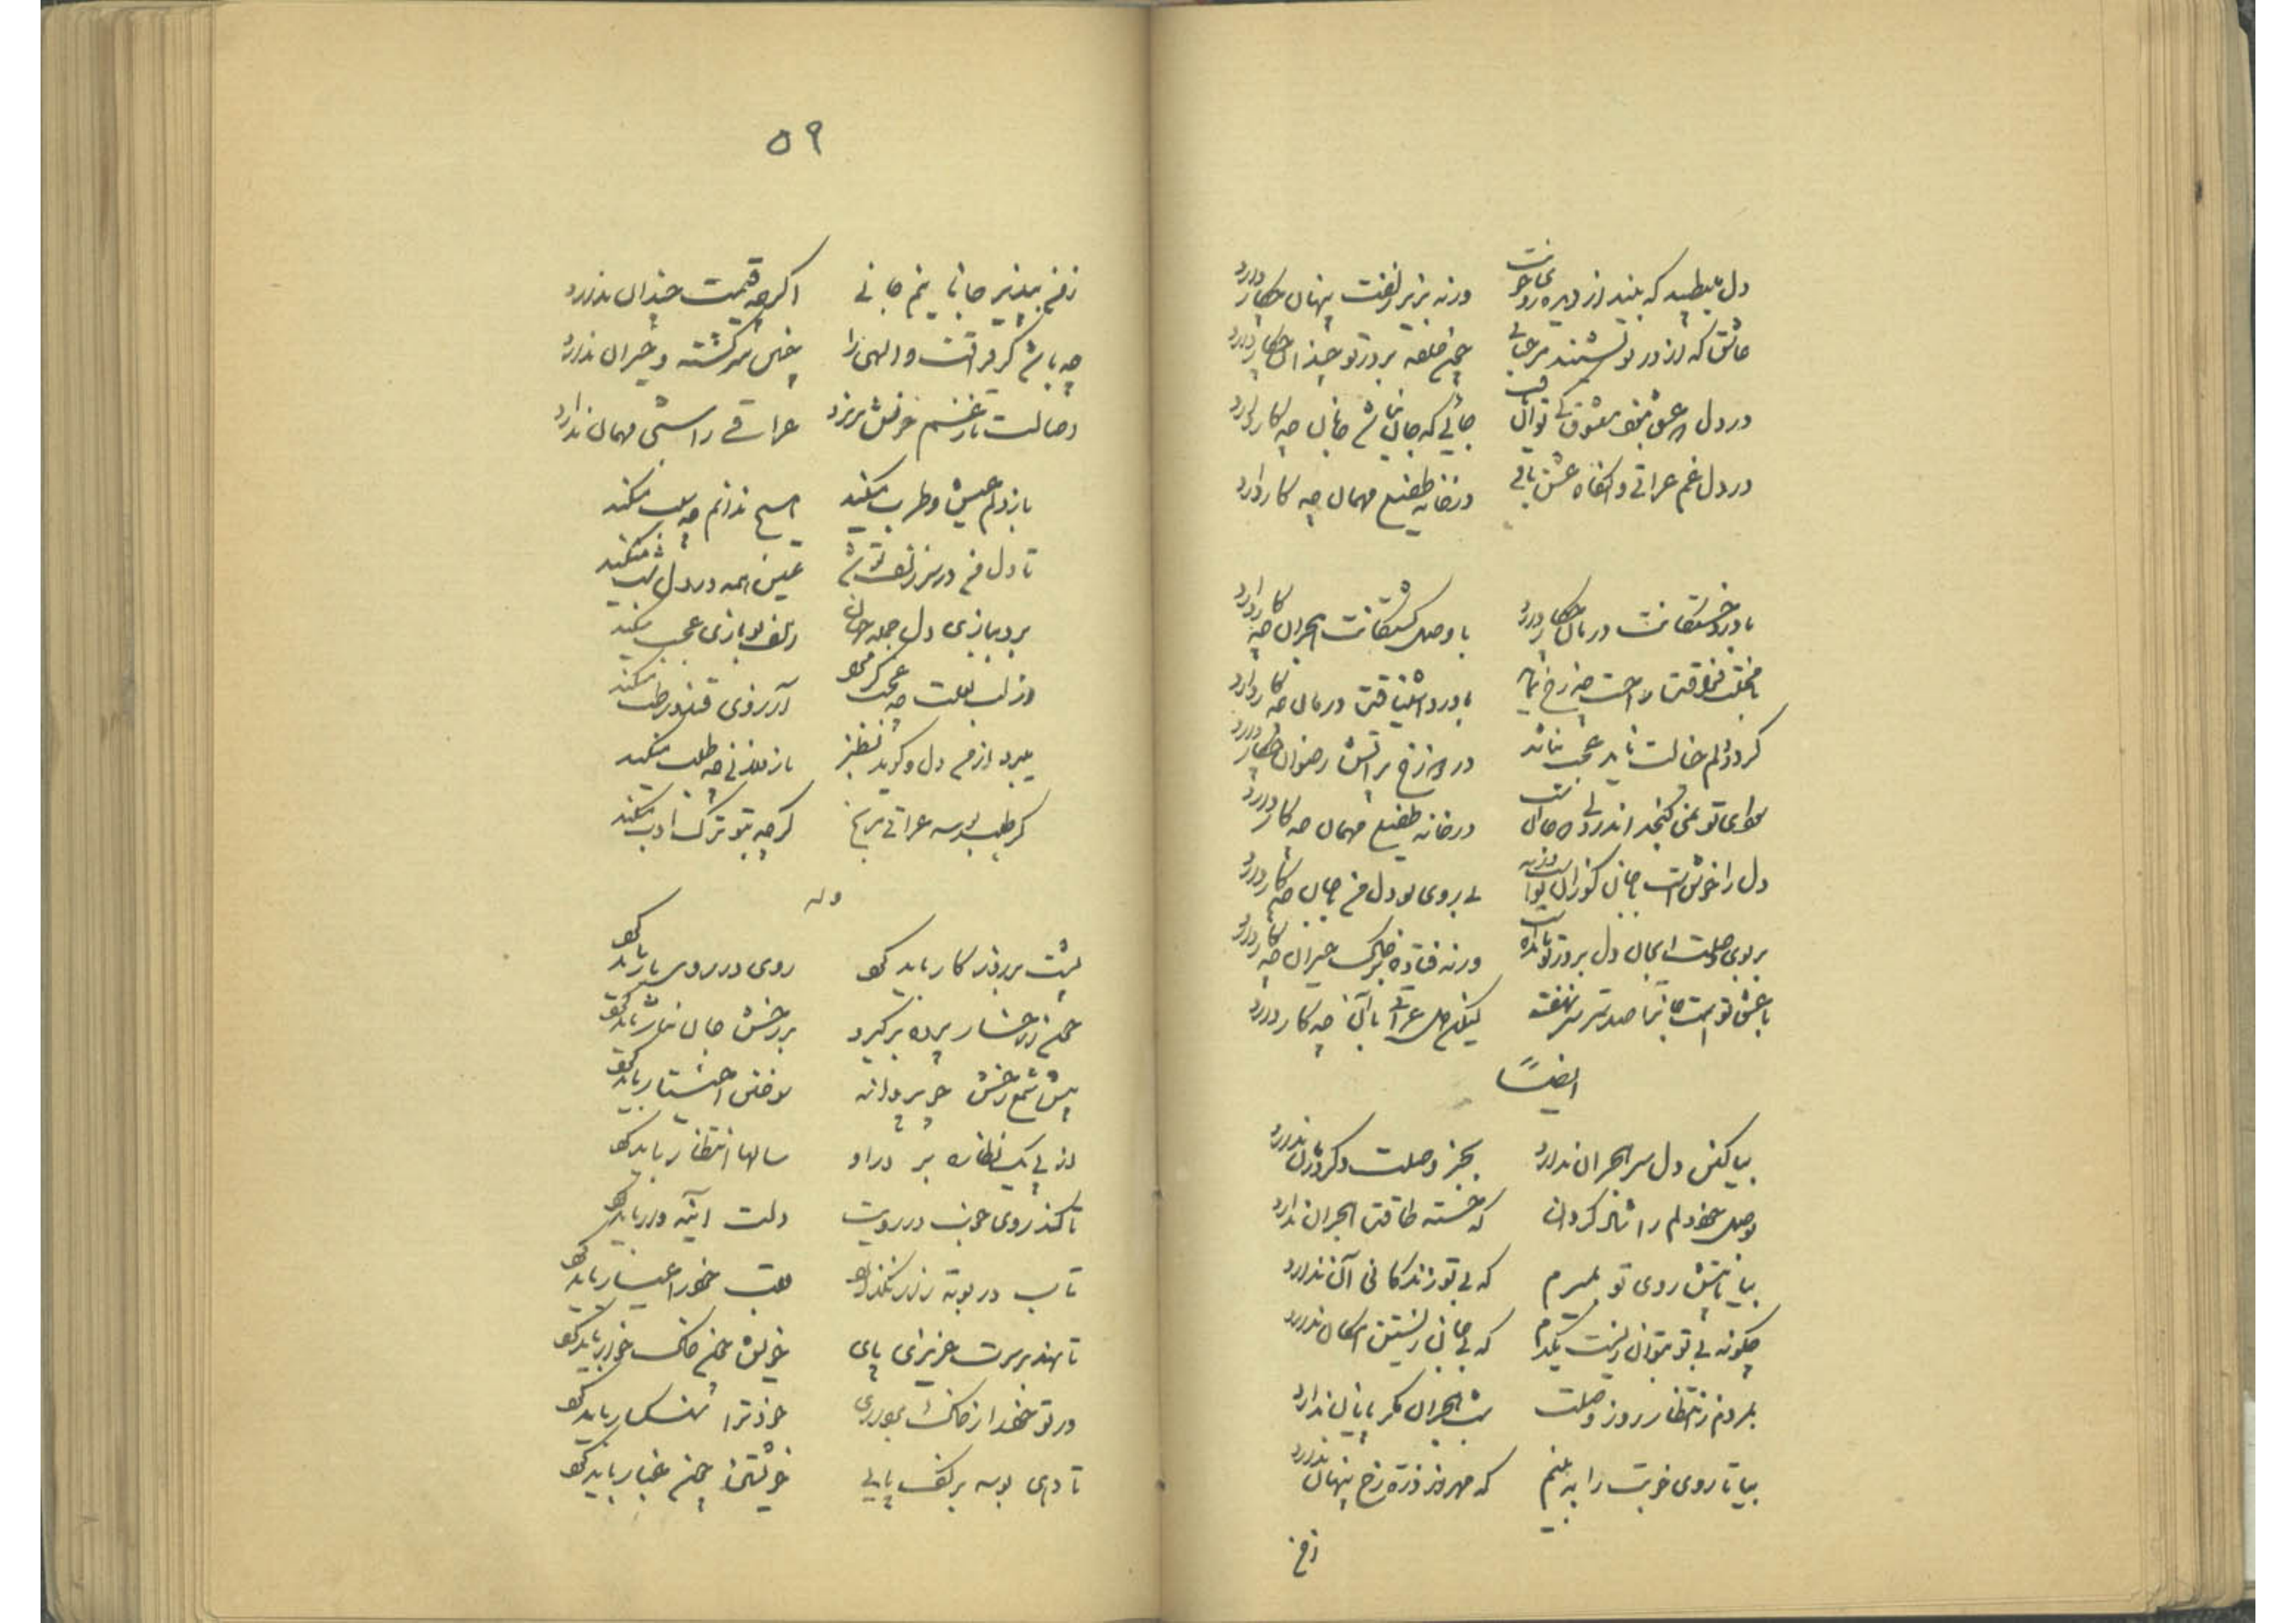 دل می‌طپد که بیند از دیده روی خوبت ورنه بزیر زلفت پنهان چکار دارد
عاشق که از در تو نشنید مرحبائی چون حلقه بر در تو چندان چکار دارد
در دل چو عشق نبود معشوق کی توان یافت جائی که جان نباشد جانان چه کار دارد
در دل غم عراقی وانگاه عشق باقی در خانه طفیلی مهمان چه کار دارد
با درد خستگانت درمان چکار دارد با وصل کشتگانت هجران چه کار دارد
با محنت فراقت راحت چه رخ نماید با درد اشتیاقت درمان چه کار دارد
گر در دلم خیالت ناید عجب نباشد در دوزخ پر آتش رضوان چکار دارد
سودای تو نمی گنجد اندر دلی که جانست در خانه طفیلی مهمان چه کار دارد
دل را خوش است با جان گر زان تست ورنه بی روی تو دل من با جان چه کار دارد
بر بوی وصلت ای جان دل بر در تو مانده است ورنه فتاده بر خاک حیران چه کار دارد
با عشق تست جانرا صد سر سر نهفته لیکن دل عراقی با آن چه کار دارد
ایضاً
بیا کین دل سر هجران ندارد بجز وصلت دگر درمان ندارد
بوصل خود دلم را شاد گردان که خسته طاقت هجران ندارد
بیا تا پیش روی تو بمیرم که بی تو زندگانی آن ندارد
چگونه بی تو بتوان زیست یکدم که بی جان زیستن امکان ندارد
بمردم ز انتظار روز وصلت شب هجران مگر پایان ندارد
بیا تا روی خوبت را به بینم که مهر از ذره رخ پنهان ندارد
ز من
۵۹
ز من بپذیر جانا نیم جانی اگرچه قیمت چندان ندارد
چه باشد گر فراقت والهی را چنین سرگشته و حیران ندارد
وصالت تا ز غم خونش نریزد عراقی را شبی مهمان ندارد
باز دلم عیش و طرب میکند هیچ ندانم چه سبب میکند
تا دل من در سر زلف تو شد عیش همه در دل شب میکند
برد ببازی دل جمله جهان زلف تو بازی عجب میکند
وز لب لعلت چه عجب گر مرا آرزوی قند و رطب میکند
میبرد از من دل و گوید بطنز باز فلانی چه طلب میکند
گر طلبد بوسه عراقی مرنج گرچه بتو ترک ادب میکند
وله
پشت بر روزگار باید کرد روی در روی یار باید کرد
چون ز رخسار پرده برگیرد بر رخش جان نثار باید کرد
پیش شمع رخش چو پروانه سوختن اختیار باید کرد
از پی یک نظاره بر در او سالها انتظار باید کرد
تا کند روی خوب در رویت دلت آئینه وار باید کرد
تات در بوته زار نگذارد قلب خود را عیار باید کرد
تا نهد بر سرت عزیزی پای خویش چون خاک خوار باید کرد
ور تو خود را ز خاک به دانی خود ترا سنگسار باید کرد
تا دهی بوسه بر کف پایی خویشتن چون غبار باید کرد